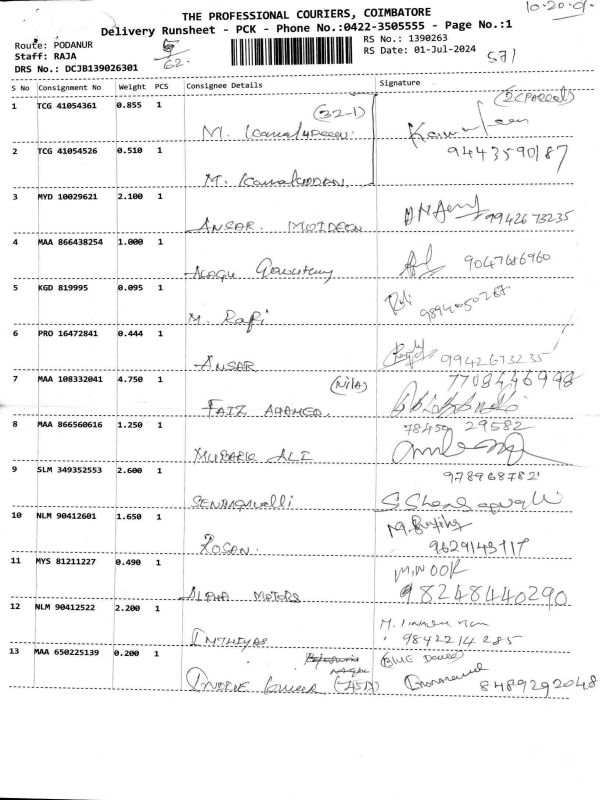 10-20-9.
THE PROFESSIONAL COURIERS, COIMBATORE
Delivery Runsheet - PCK - Phone No.:0422-3505555 - Page No.:1
Route: PODANUR
RS No.: 1390263
Staff: RAJA
RS Date: 01-Jul-2024
62
571
DRS No.: DCJB139026301
S No Consignment No Weight PCS Consignee Details Signature
1 TCG 41054361 0.855 1 (32-1) (2(Parcel)
M. Kamaludeen.
9443590187
2 TCG 41054526 0.510 1
M.
3 MYD 10029621 2.100 1
ANSAR. MOIDEEN 9942673235
4 MAA 866438254 1.000 1
9047686960
5 KGD 819995 0.095 1
M. Rafi
6 PRO 16472841 0.444 1
ANSAR 9942673235
7 MAA 108332041 4.750 1 (Nila) 7708446998
FAIZ AHAMED.
8 MAA 866560616 1.250 1 78450 29582
MUBARK ALI
9 SLM 349352553 2.600 1 9789687821
SENBAGAVALLI
10 NLM 90412601 1.650 1
ROSAN. 9629143117
11 MYS 81211227 0.490 1 M. NOOR
ALPHA MOTORS 98248440290
12 NLM 90412522 2.200 1
IMTHIYAS 9842214285
13 MAA 650225139 0.200 1 (BLUE
KUMAR 8489292048